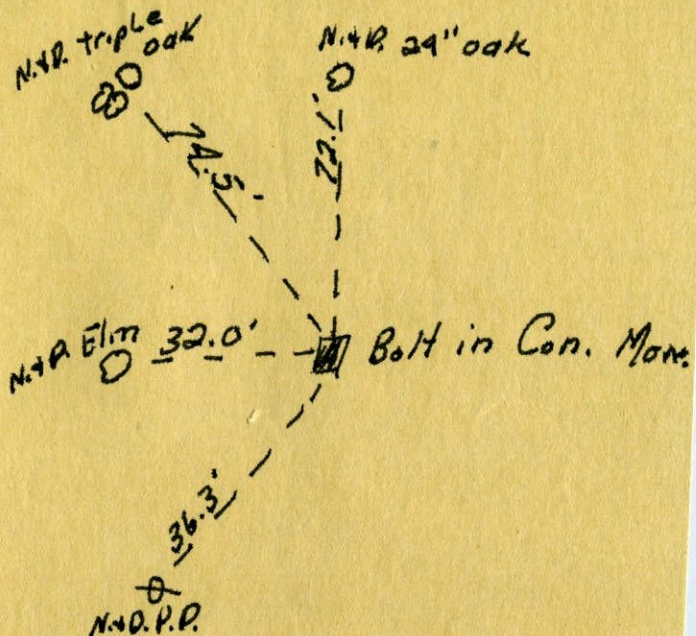 N.&D. triple
oak
N.&D. 24" oak
74.5'
22.1'
N.&D. Elm 32.0'
Bolt in Con. Mon.
36.3'
N.&D. P.P.